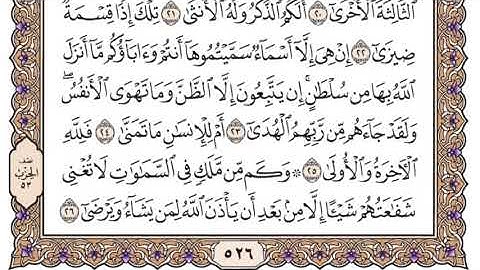 ٱلثَّالِثَةَ ٱلۡأُخۡرَىٰٓ ٢٠ أَلَكُمُ ٱلذَّكَرُ وَلَهُ ٱلۡأُنثَىٰ ٢١ تِلۡكَ إِذٗا قِسۡمَةٞ
ضِيزَىٰٓ ٢٢ إِنۡ هِيَ إِلَّآ أَسۡمَآءٞ سَمَّيۡتُمُوهَآ أَنتُمۡ وَءَابَآؤُكُم مَّآ أَنزَلَ
ٱللَّهُ بِهَا مِن سُلۡطَٰنٍۚ إِن يَتَّبِعُونَ إِلَّا ٱلظَّنَّ وَمَا تَهۡوَى ٱلۡأَنفُسُۖ
وَلَقَدۡ جَآءَهُم مِّن رَّبِّهِمُ ٱلۡهُدَىٰٓ ٢٣ أَمۡ لِلۡإِنسَٰنِ مَا تَمَنَّىٰ ٢٤ فَلِلَّهِ
ٱلۡأٓخِرَةُ وَٱلۡأُولَىٰ ٢٥ ۞ وَكَم مِّن مَّلَكٖ فِي ٱلسَّمَٰوَٰتِ لَا تُغۡنِي
شَفَٰعَتُهُمۡ شَيۡـًٔا إِلَّا مِنۢ بَعۡدِ أَن يَأۡذَنَ ٱللَّهُ لِمَن يَشَآءُ وَيَرۡضَىٰٓ ٢٦
نصف
الحزب
٥٣
٥٢٦